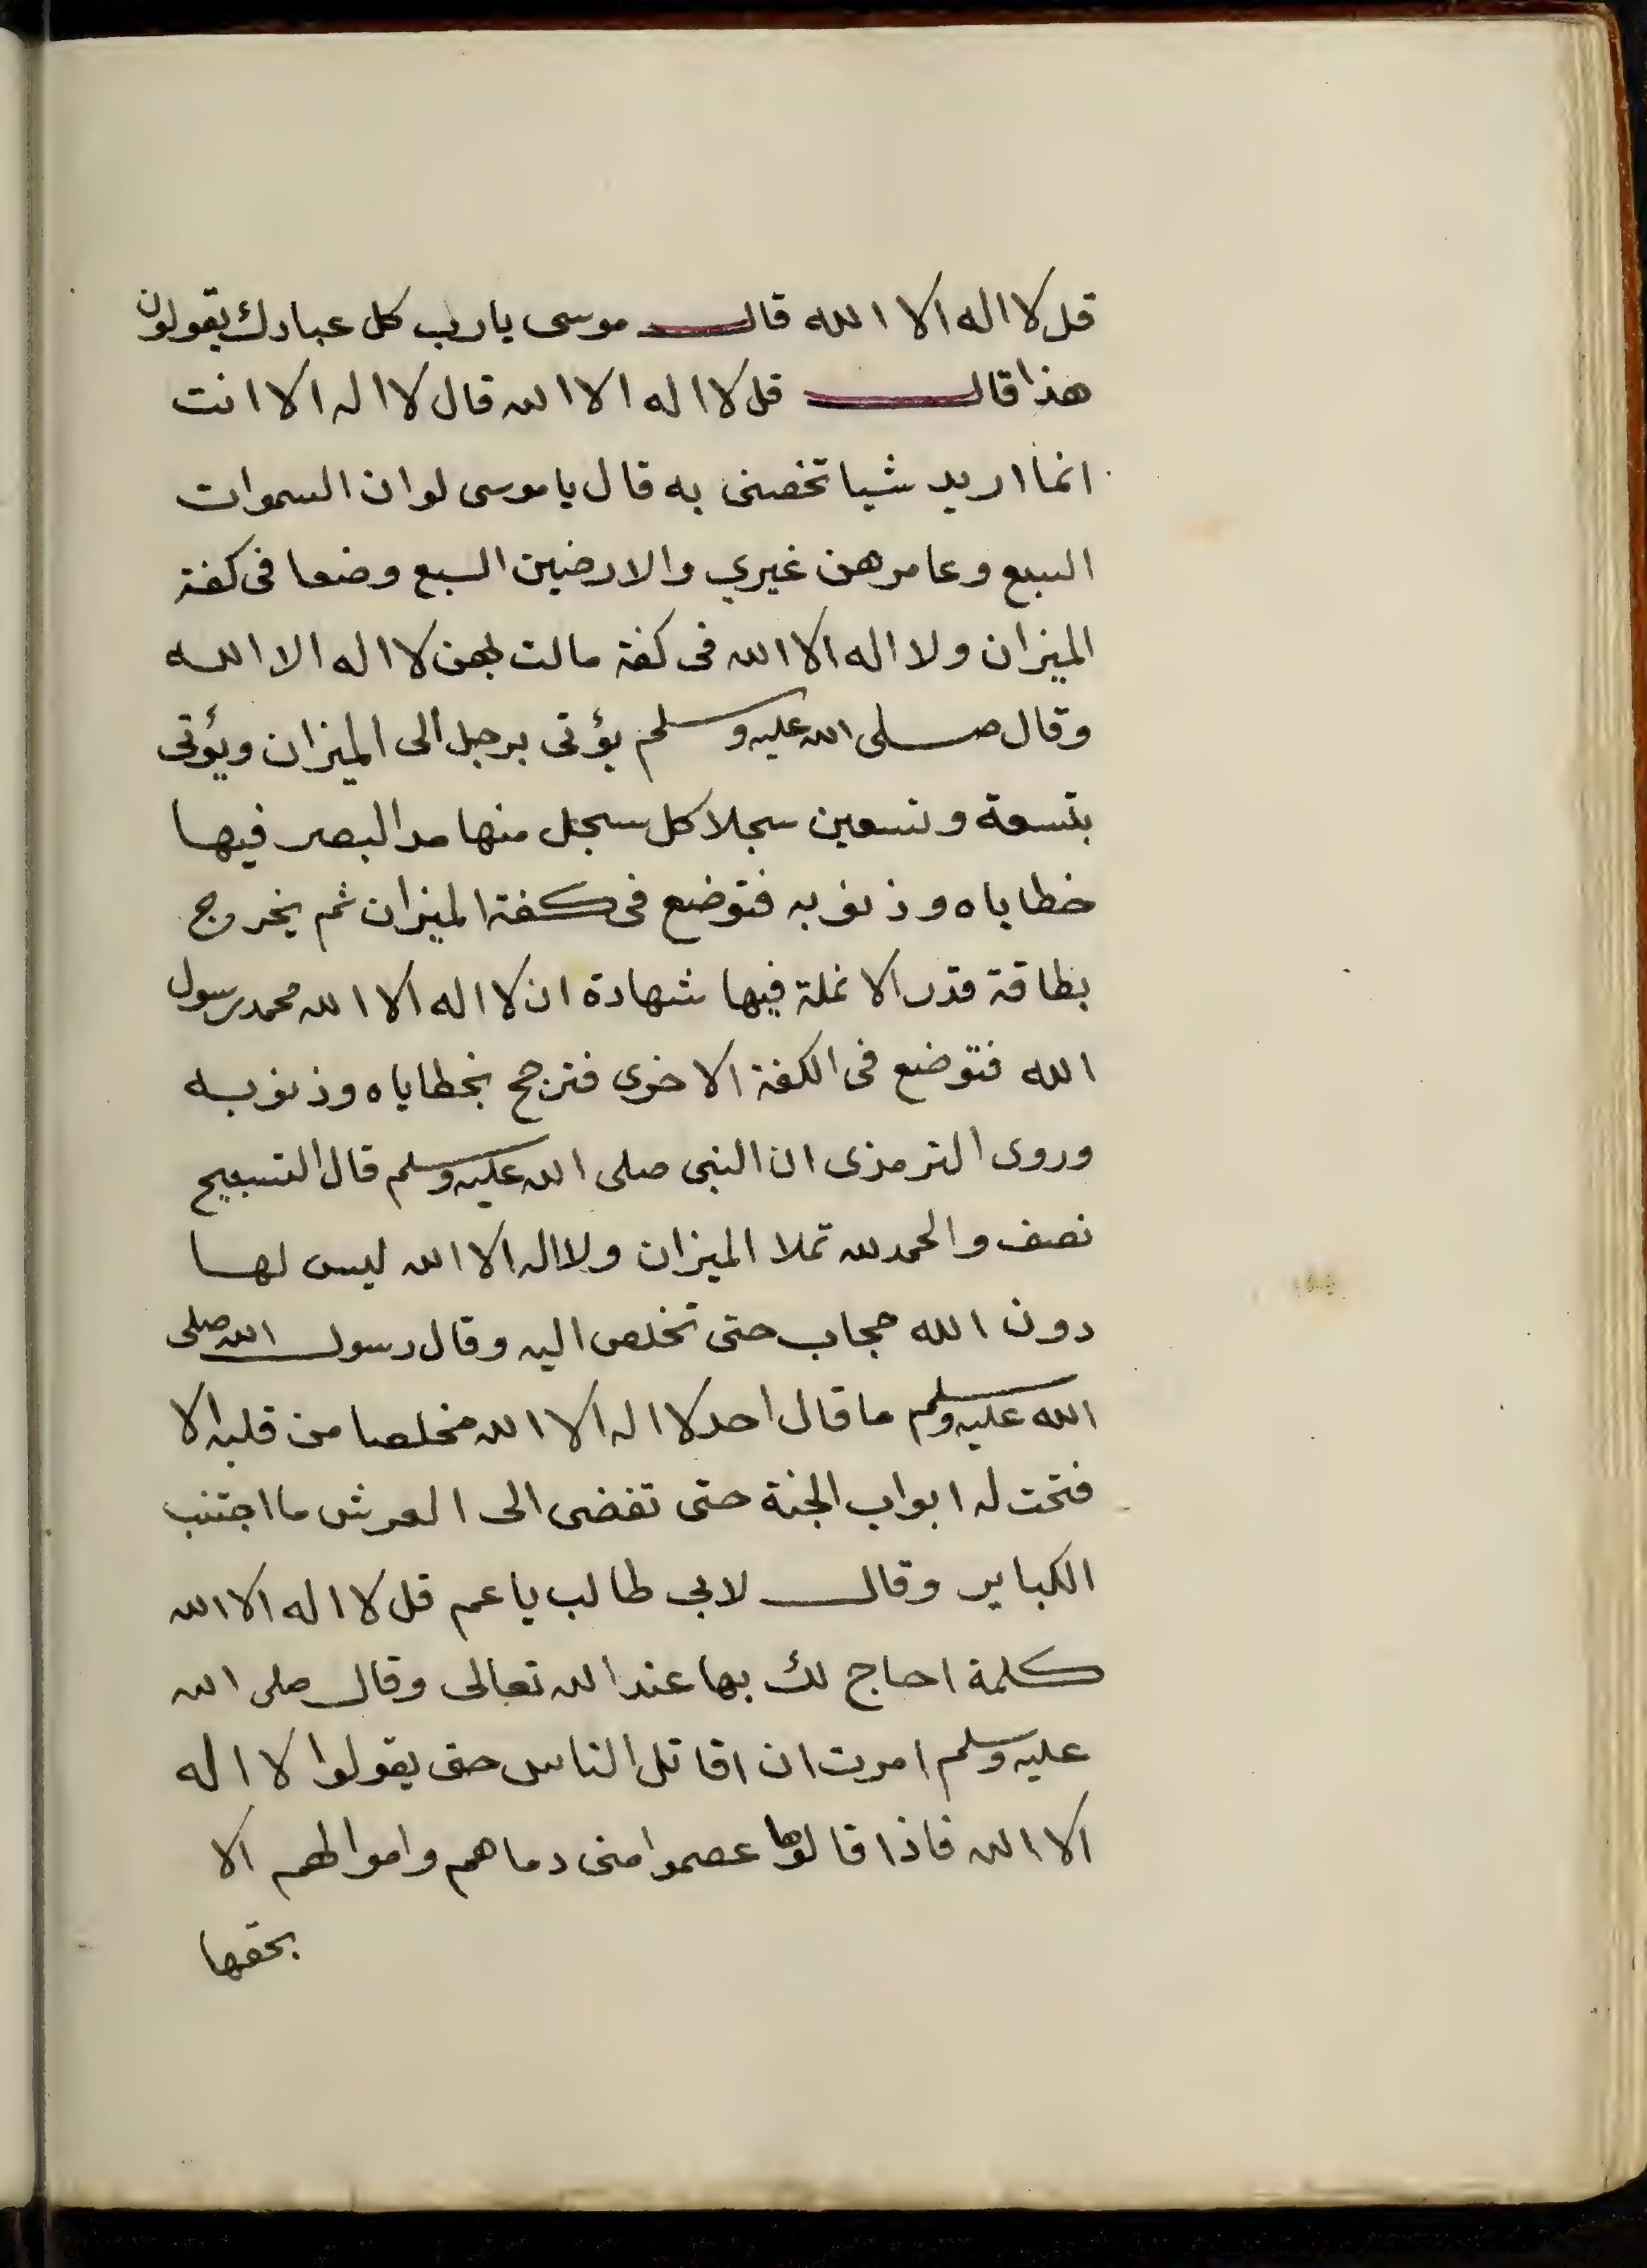 قل لا اله الا الله قال موسى يارب كل عبادك يقولون
هذا قال قل لا اله الا الله قال لا اله الا انت
انما اريد شيا تخصنى به قال يا موسى لو ان السموات
السبع وعامرهن غيري والارضين السبع وضعا فى كفة
الميزان ولا اله الا الله فى كفة مالت بهن لا اله الا الله
وقال صلى الله عليه وسلم يؤتى برجل الى الميزان ويؤتى
بتسعة وتسعين سجلا كل سجل منها مد البصر فيها
خطاياه وذنوبه فتوضع فى كفة الميزان ثم يخرج
بطاقة قدر الانملة فيها شهادة ان لا اله الا الله محمد رسول
الله فتوضع فى الكفة الاخرى فترجح بخطاياه وذنوبه
وروى الترمذى ان النبى صلى الله عليه وسلم قال التسبيح
نصف والحمد لله تملا الميزان ولا اله الا الله ليس لها
دون الله حجاب حتى تخلص اليه وقال رسول الله صلى
الله عليه وسلم ما قال احد لا اله الا الله مخلصا من قلبه الا
فتحت له ابواب الجنة حتى تفضى الى العرش ما اجتنب
الكباير وقال لابى طالب يا عم قل لا اله الا الله
كلمة احاج لك بها عند الله تعالى وقال صلى الله
عليه وسلم امرت ان اقاتل الناس حتى يقولوا لا اله
الا الله فاذا قالوها عصموا منى دماهم واموالهم الا
بحقها